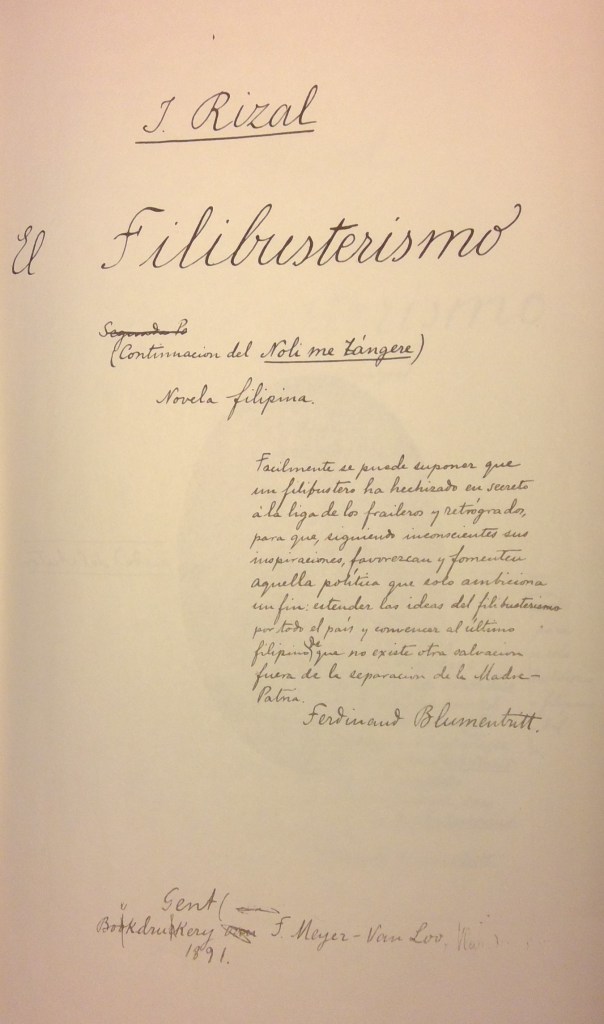 J. Rizal
El Filibusterismo
Segunda Pa
(Continuacion del Noli me Tángere)
Novela filipina.
Facilmente se puede suponer que
un filibustero ha hechizado en secreto
á la liga de los fraileros y retrógrados,
para que, siguiendo inconscientes sus
inspiraciones, favorezcan y fomenten
aquella política que solo ambiciona
un fin: estender las ideas del filibusterismo
por todo el país y convencer al último
filipino de que no existe otra salvacion
fuera de la separacion de la Madre-
Patria.
Ferdinand Blumentritt.
Gent (
Boekdrukkery F. Meyer-Van Loo.
1891.